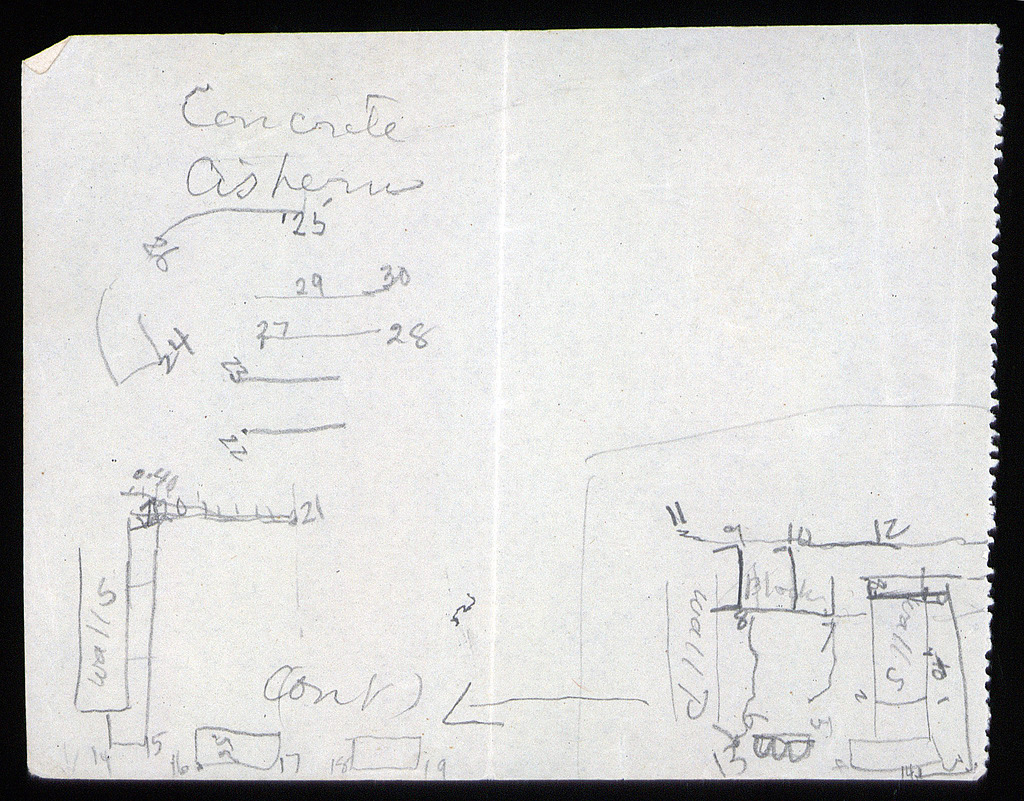 Concrete
Cisterns
25
26
29 30
27 28
24
23
22
0.40
20 21
11 9 10 12
Block
8
Wall S
Wall P
Wall S
(Cont)
6 5
14 15 16 17 18 19
13